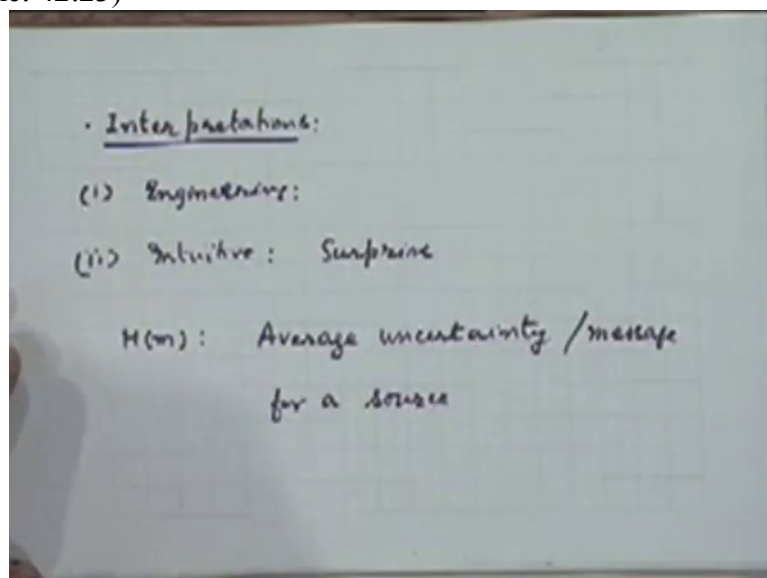 42:25)
· Interpretations:
(i) Engineering:
(ii) Intuitive: Surprise
H(m): Average uncertainty/message
for a source